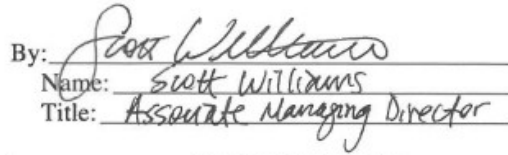 By: Scott Williams
Name: Scott Williams
Title: Associate Managing Director